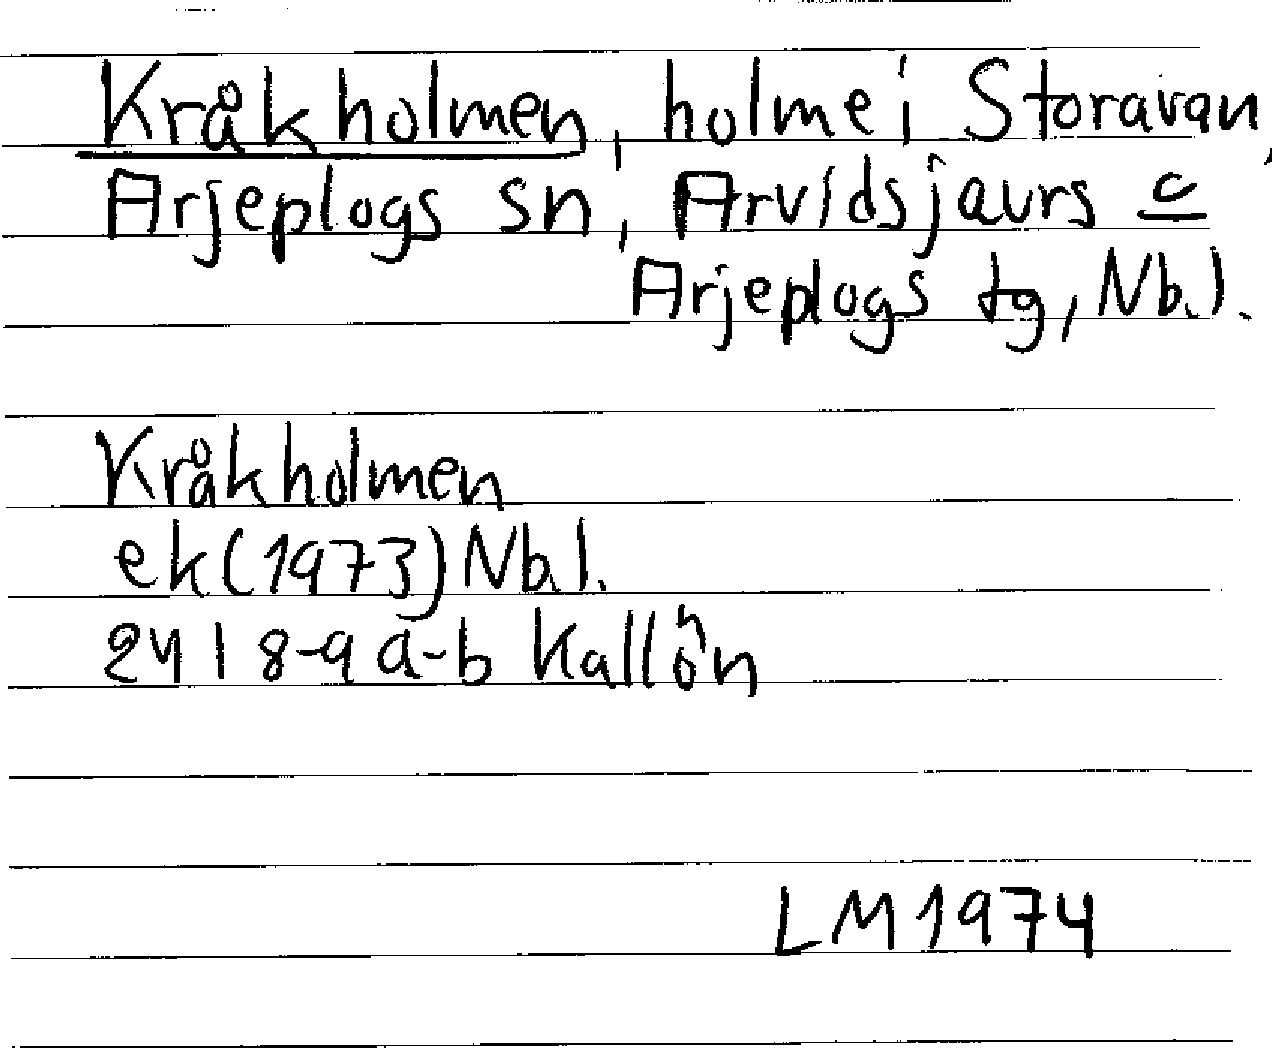 Kråkholmen, holme i Storavan,
Arjeplogs sn, Arvidsjaurs o
Arjeplogs tg, Nb.l.
Kråkholmen
ek (1973) Nb.l.
24 I 8-9 a-b Kallön
LM 1974